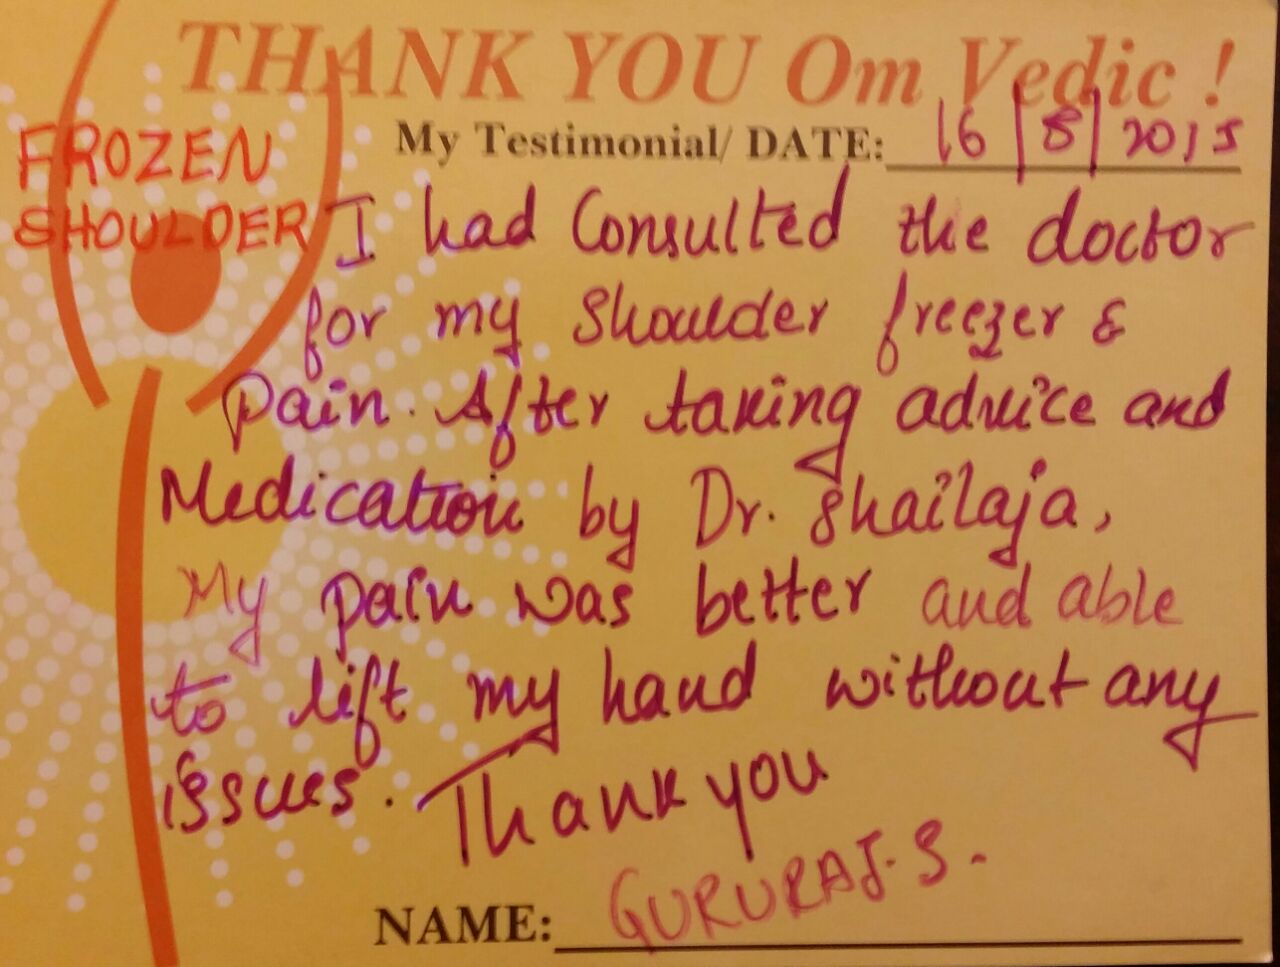 THANK YOU Om Vedic !
My Testimonial/ DATE: 16/8/2015
FROZEN
SHOULDER
I had Consulted the doctor
for my Shoulder freezer &
Pain. After taking advice and
Medication by Dr. Shailaja,
My pain was better and able
to lift my hand without any
issues. Thank you
NAME: GURURAJ.S.